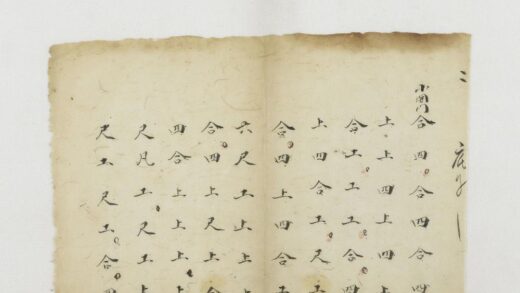 二
小開门合四合四合四
上上四上四上
合工工工合四
上四合工尺上
合四上四合工
六尺工上上上
合四上尺上合
四合上上上
尺凡工尺工上
尺工尺工合四